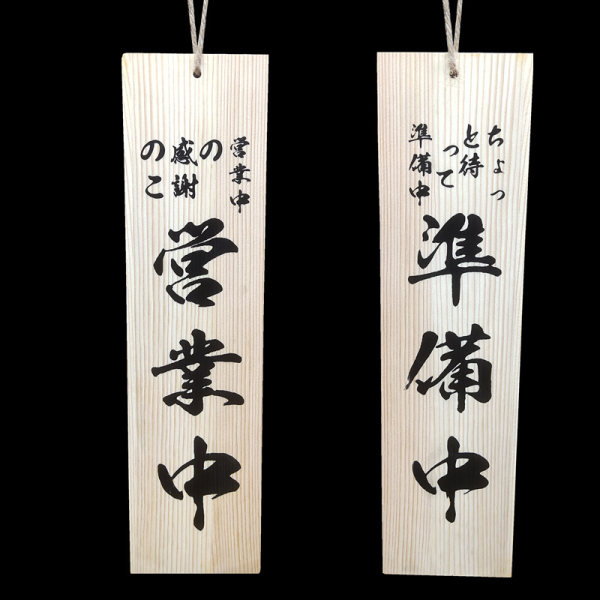 営業中
の
感謝
のこ
営業中
ちょっ
と待
って
準備中
準備中